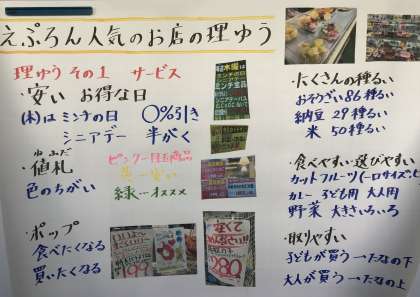 えぷろん人気のお店の理ゆう
理ゆう その1 サービス
・安い お得な日
(木)は ミンチの日 〇%引き
シニアデー 半がく
・値札
ねふだ
色のちがい
ピンク…注目商品
黄…安い
緑…オススメ
・ポップ
食べたくなる
買いたくなる
199
安くて
280
・たくさんの種るい
おそうざい86種るい
納豆 29種るい
米 50種るい
・食べやすい・選びやすい
カットフルーツ(一口サイズ、
カレー 子ども用 大人用
野菜 大きさいろいろ
・取りやすい
子どもが買う→たなの下
大人が買う→たなの上